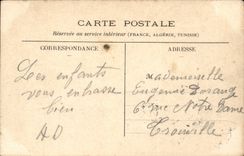 CARTE POSTALE
Réservée au service intérieur (FRANCE, ALGÉRIE, TUNISIE)
CORRESPONDANCE
ADRESSE
Les enfants
vous embrasse
bien
AD
Mademoiselle
Eugénie Durand
rue Notre Dame
Trouville